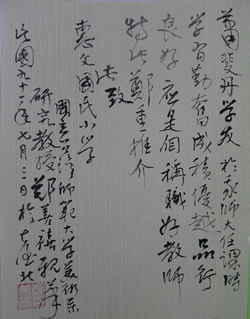 黃斐丹學友於永師大任課時
學習勤奮成績優越品行
良好應是個稱職好教師
特此鄭重推介
此致
惠文國民小學
國立台灣師範大學美術系
研究教授鄭善禧親筆
民國九十二年七月三日於台北